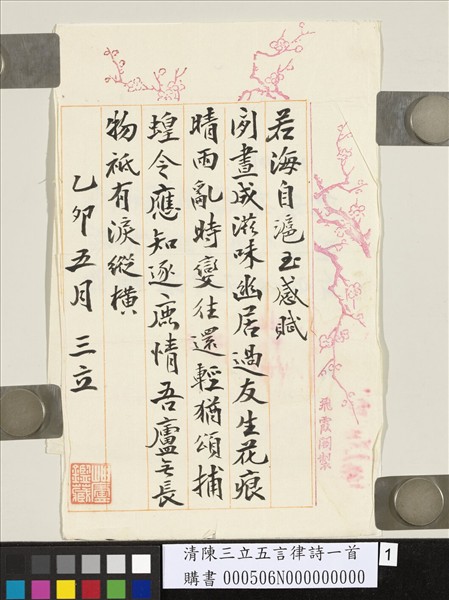 若海自滬至感賦
閉晝成滋味幽居過友生花痕
晴雨亂時變往還輕猶頌捕
蝗令應知逐鹿情吾廬无長
物祇有淚縱橫
乙卯五月 三立
飛霞閣製
岫廬鑑藏
清陳三立五言律詩一首
購書 000506N000000000
1